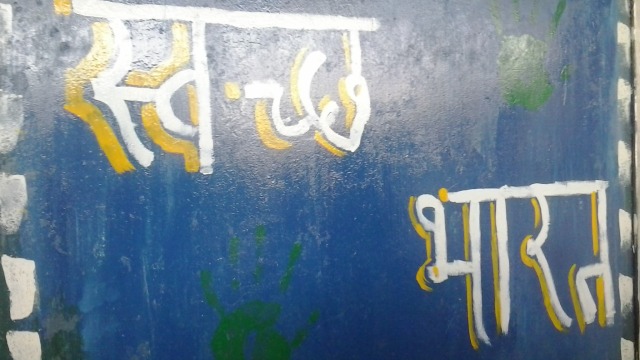 स्वच्छ
भारत